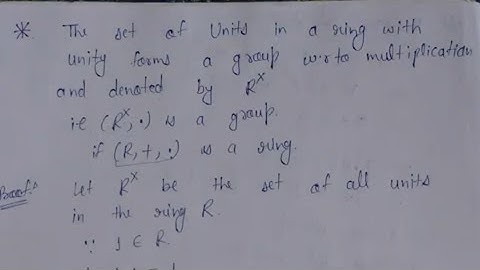 * The set of Units in a ring with
unity forms a group w.r.to multiplication
and denoted by R^x
i.e (R^x, ·) is a group.
if (R, +, ·) is a ring.
Proof:- Let R^x be the set of all units
in the ring R.
∵ 1 ∈ R